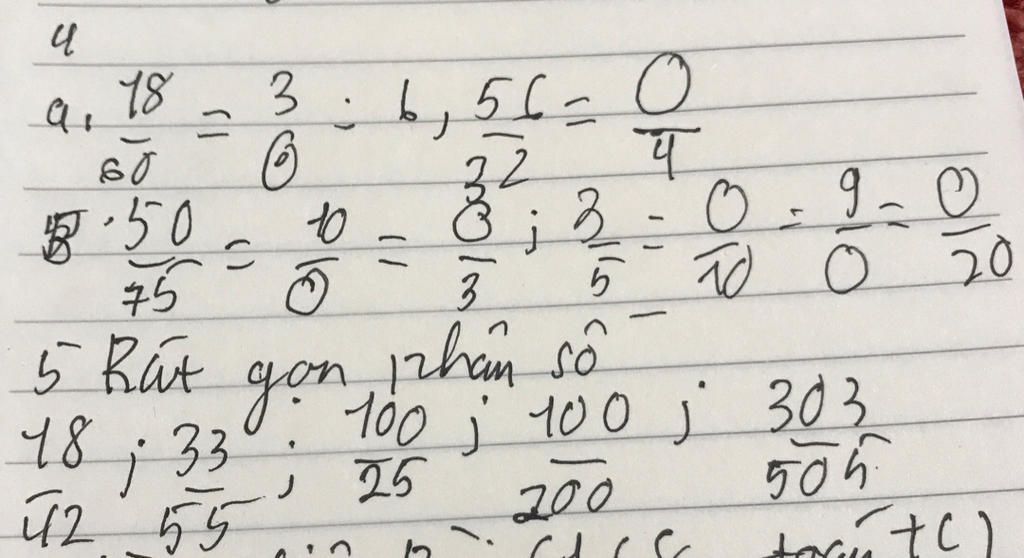 4
a. 18/60 = 3/0 ; b, 56/32 = 0/4
50/75 = 10/0 = 0/3 ; 3/5 = 0/10 = 9/0 = 0/20
5 Rút gọn phân số
18/42 ; 33/55 ; 100/25 ; 100/200 ; 303/505